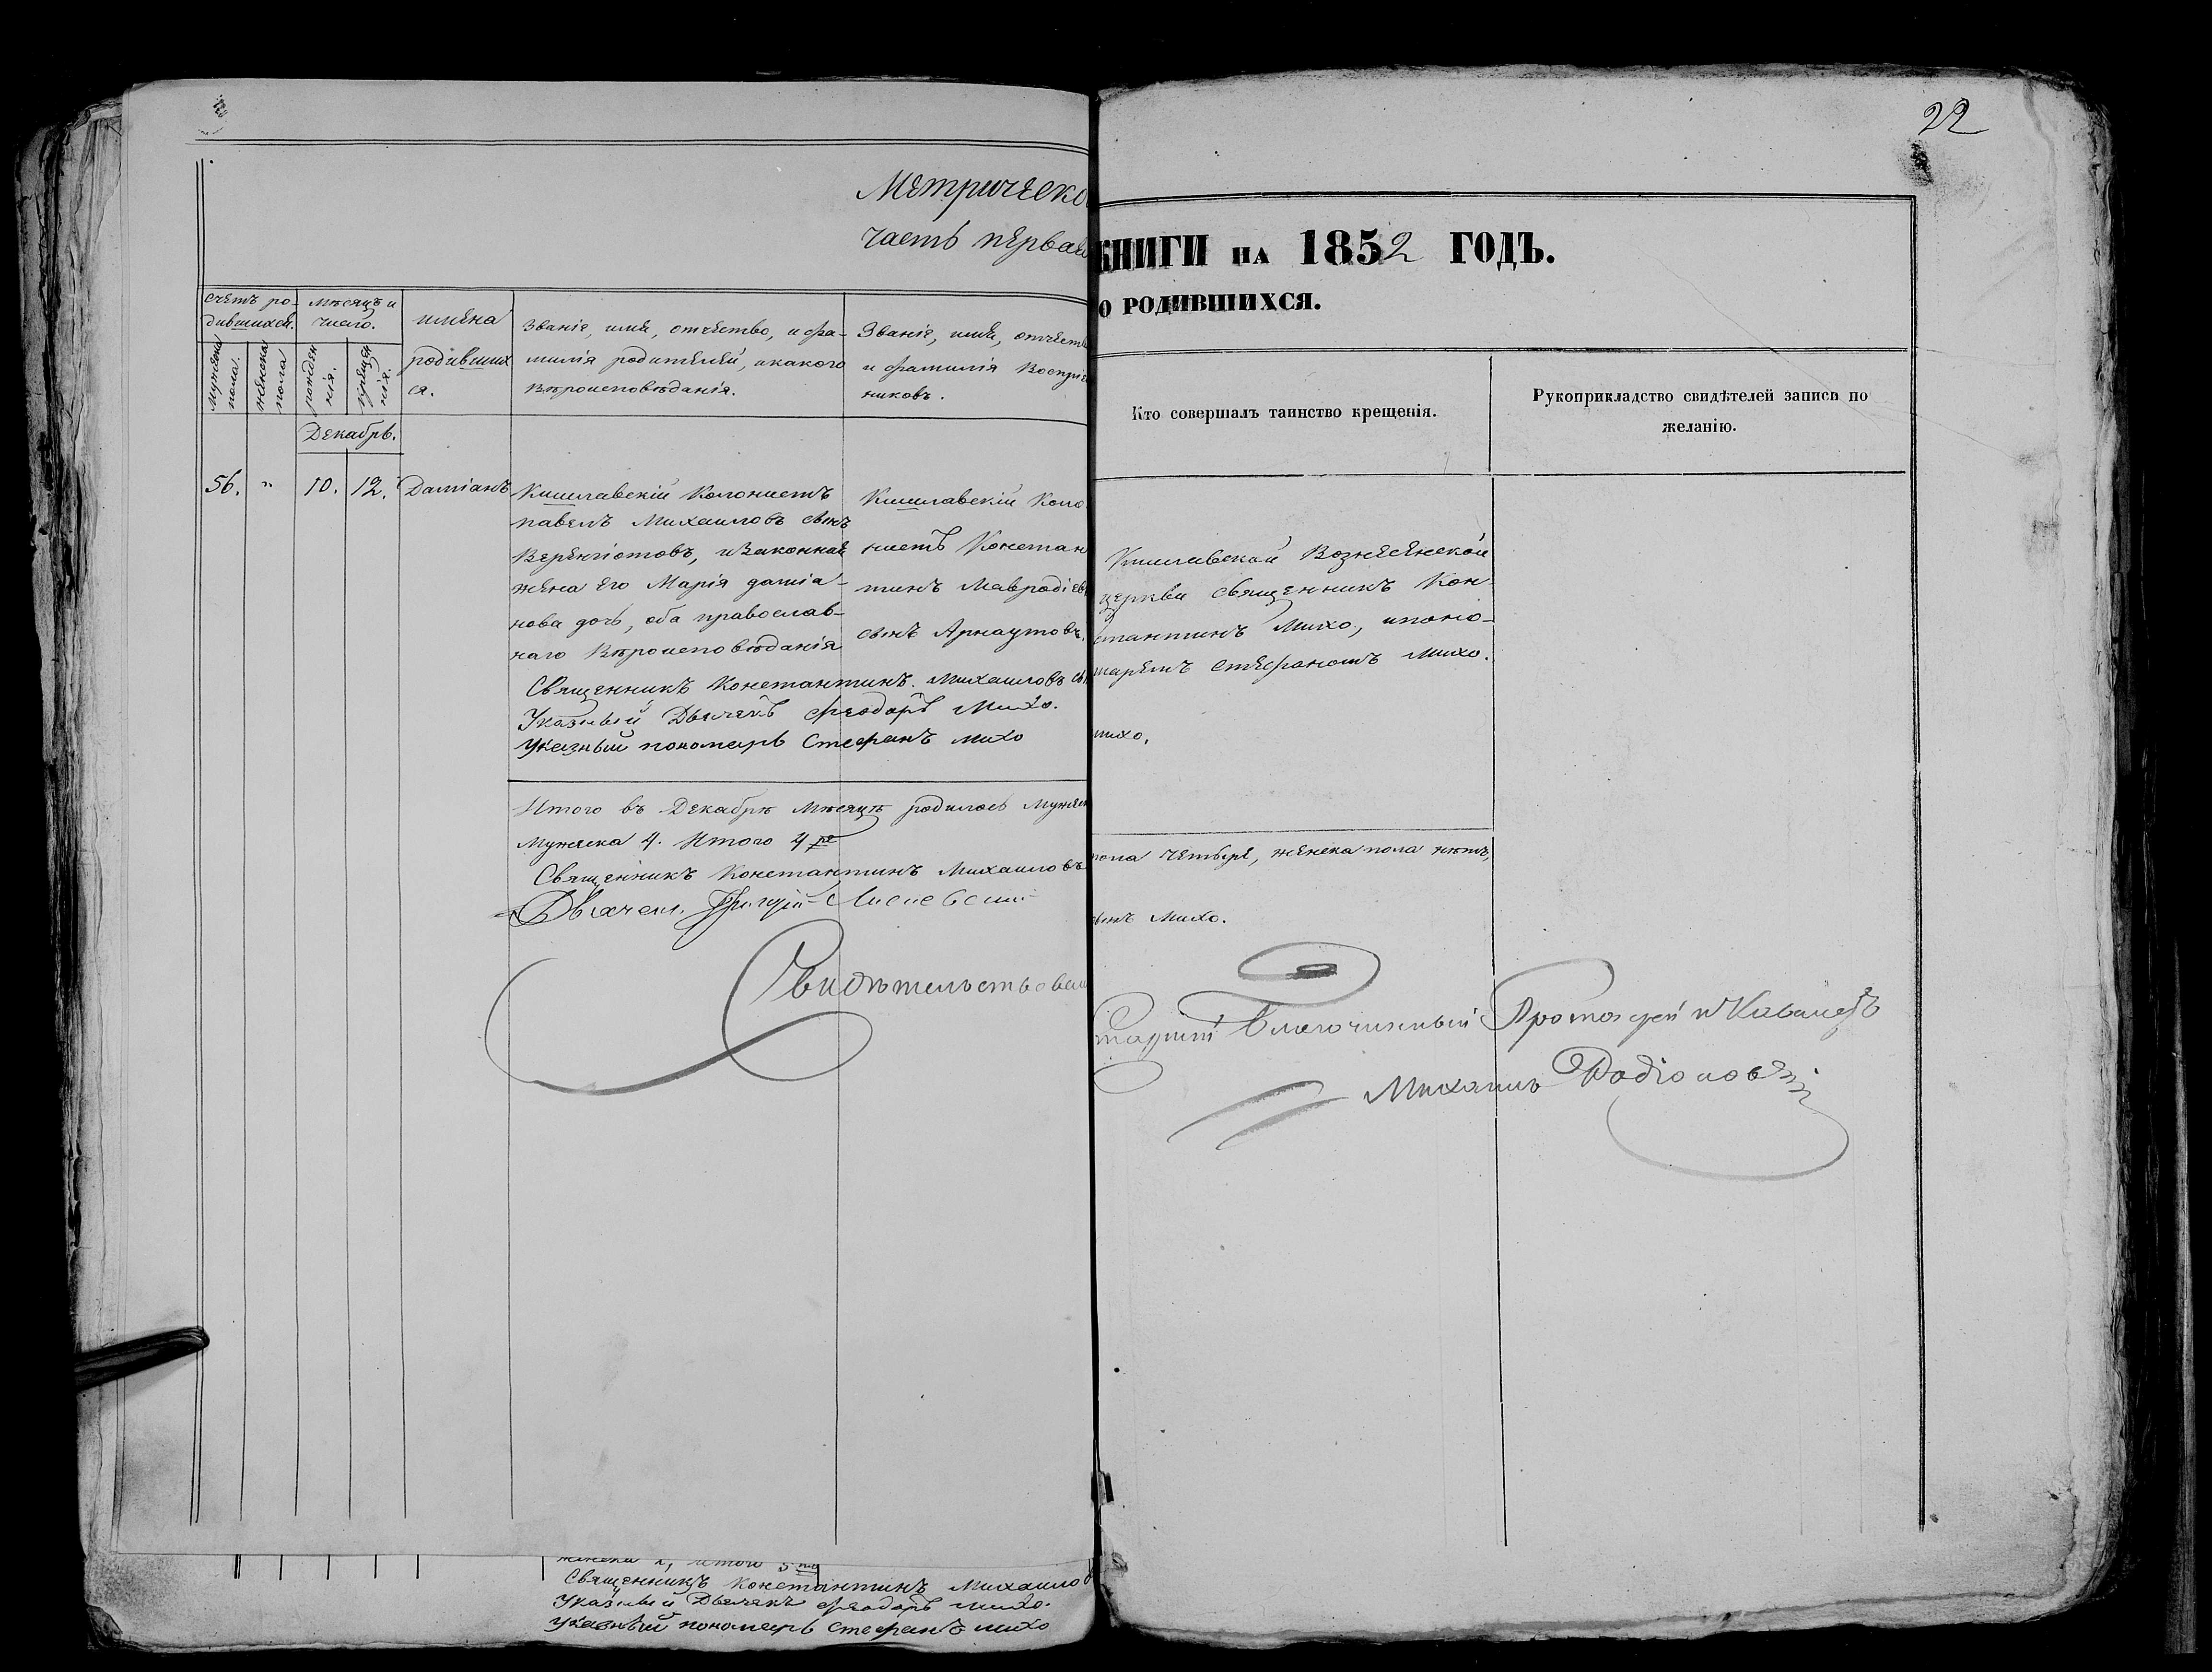 22
Метрическо
часть первая
КНИГИ НА 1852 ГОДЪ.
О РОДИВШИХСЯ.
счетъ ро-
дившихся.
мужеска
пола.
женска
пола
Мѣсяцъ и
число.
рожден
нія.
крещен
нія.
имена
родивших
ся.
Званіе, имя, отчество, и фа-
милія родителей, и какого
вѣроисповѣданія.
Званіе, имя, отчеств
и фамилія Воспріе
никовъ.
Кто совершалъ таинство крещенія.
Рукоприкладство свидѣтелей записи по
желанію.
Декабрь.
56.
"
10.
12.
Даміанъ
Кишлавскій Колонистъ
павелъ Михаиловъ сынъ
и Законная
жена его Марія даміа-
нова дочь, оба православ-
наго Вѣроисповѣданія
Кишлавскій Коло
нистъ Констан
тинъ Мавродіев
сынъ Арнаутовъ.
Кишлавской Вознесенской
церкви священникъ Кон-
стантинъ Михо, и поно-
маремъ Стефаномъ Михо.
Священникъ Константинъ Михаиловъ сы
михо,
Указный Дьячекъ Феодоръ Михо.
Указный пономарь Стефанъ михо
Итого въ Декабрѣ мѣсяцѣ родилось мужеск
пола четыре, женска пола нѣтъ,
Мужеска 4. Итого 4 ре
Священникъ Константинъ Михаиловъ
сынъ Михо.
Дьячекъ Григорій
Свидѣтельствовал
старшій Благочинный Протоіерей и Кавалеръ
Михаилъ Родіоновъ
женска 2, итого 5
Священникъ Константинъ Михаило
Указный Дьячекъ Феодоръ Михо.
Указный пономарь Стефанъ михо